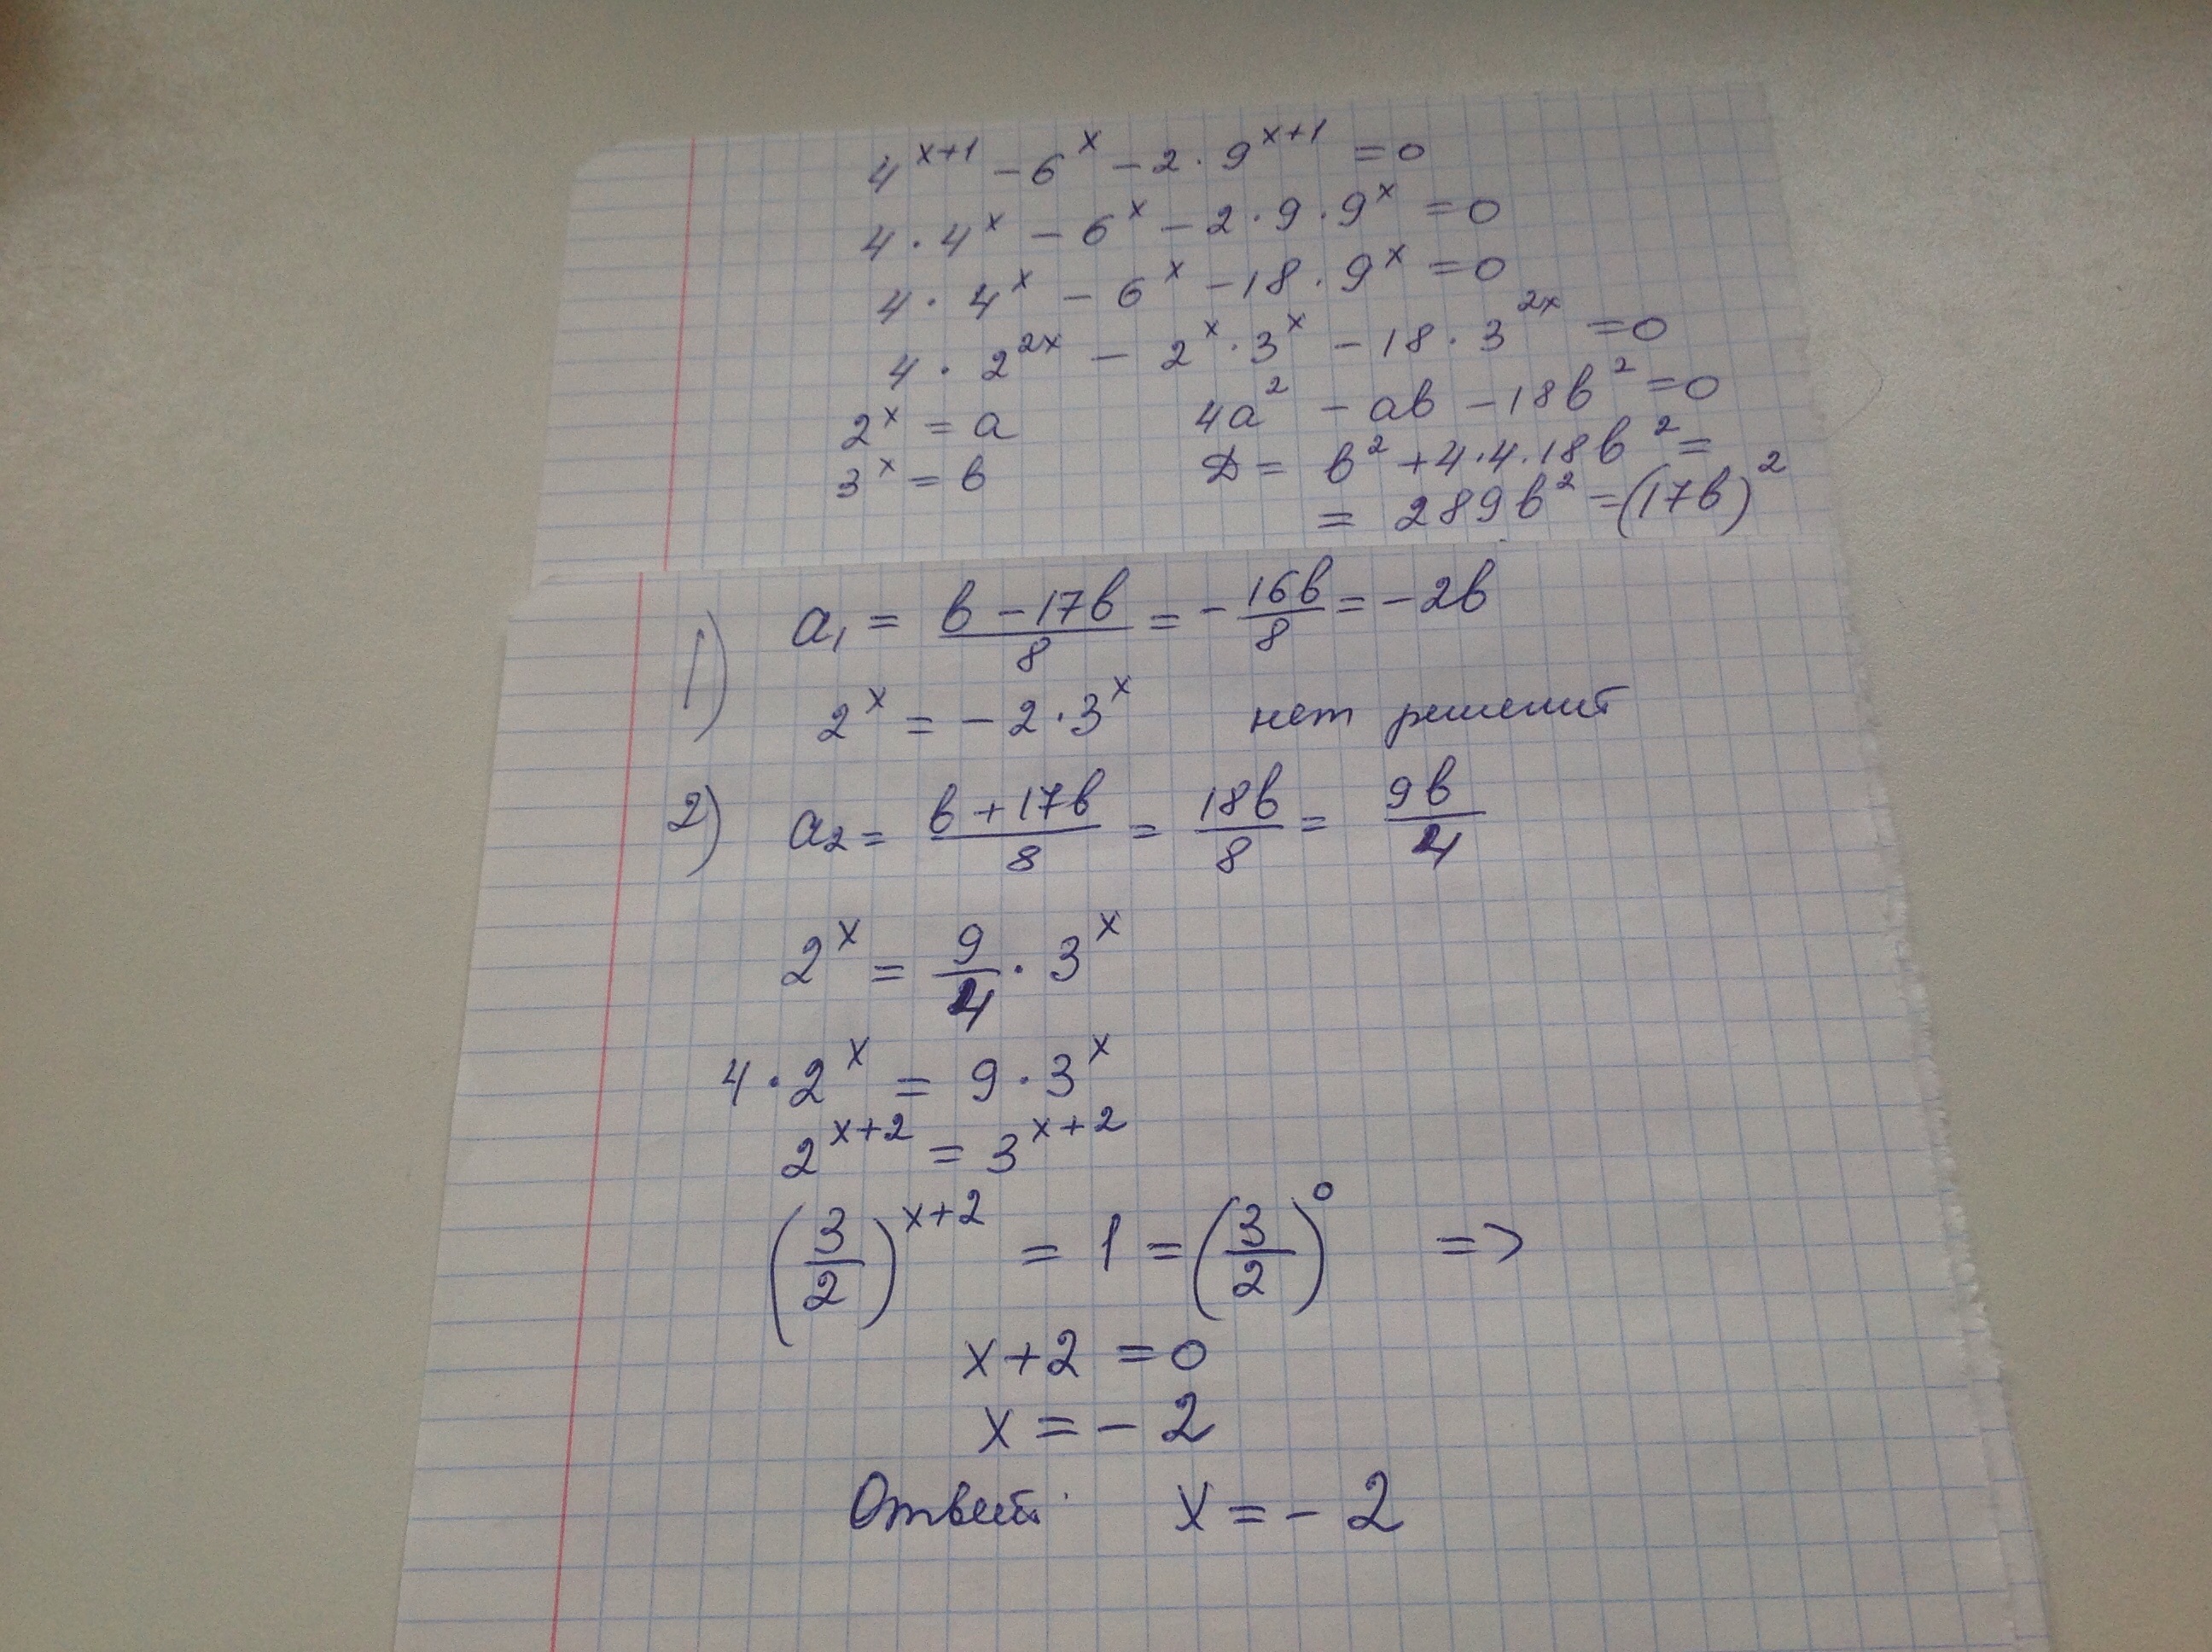 4^(x+1) − 6^x − 2 · 9^(x+1) = 0
4 · 4^x − 6^x − 2 · 9 · 9^x = 0
4 · 4^x − 6^x − 18 · 9^x = 0
4 · 2^(2x) − 2^x · 3^x − 18 · 3^(2x) = 0
2^x = a    4a² − aв − 18в² = 0
3^x = в    D = в² + 4·4·18в² =
= 289в² = (17в)²
1) a₁ = (в − 17в)/8 = −16в/8 = −2в
2^x = −2 · 3^x    нет решений
2) a₂ = (в + 17в)/8 = 18в/8 = 9в/4
2^x = 9/4 · 3^x
4 · 2^x = 9 · 3^x
2^(x+2) = 3^(x+2)
(3/2)^(x+2) = 1 = (3/2)^0 =>
x + 2 = 0
x = −2
Ответ: x = −2